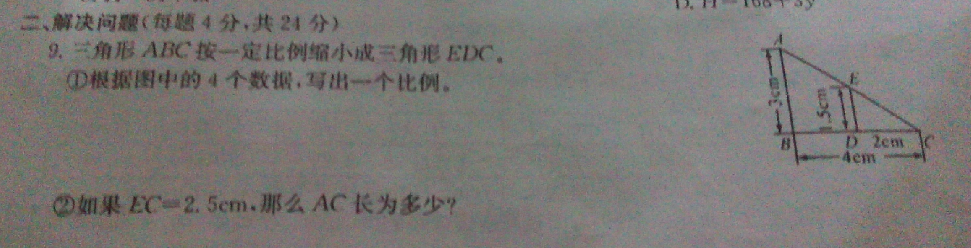 二、解决问题(每题 4 分,共 24 分)
9. 三角形 ABC 按一定比例缩小成三角形 EDC。
①根据图中的 4 个数据,写出一个比例。
A
E
3cm
1.5cm
B
D
2cm
C
4cm
②如果 EC=2.5cm,那么 AC 长为多少?